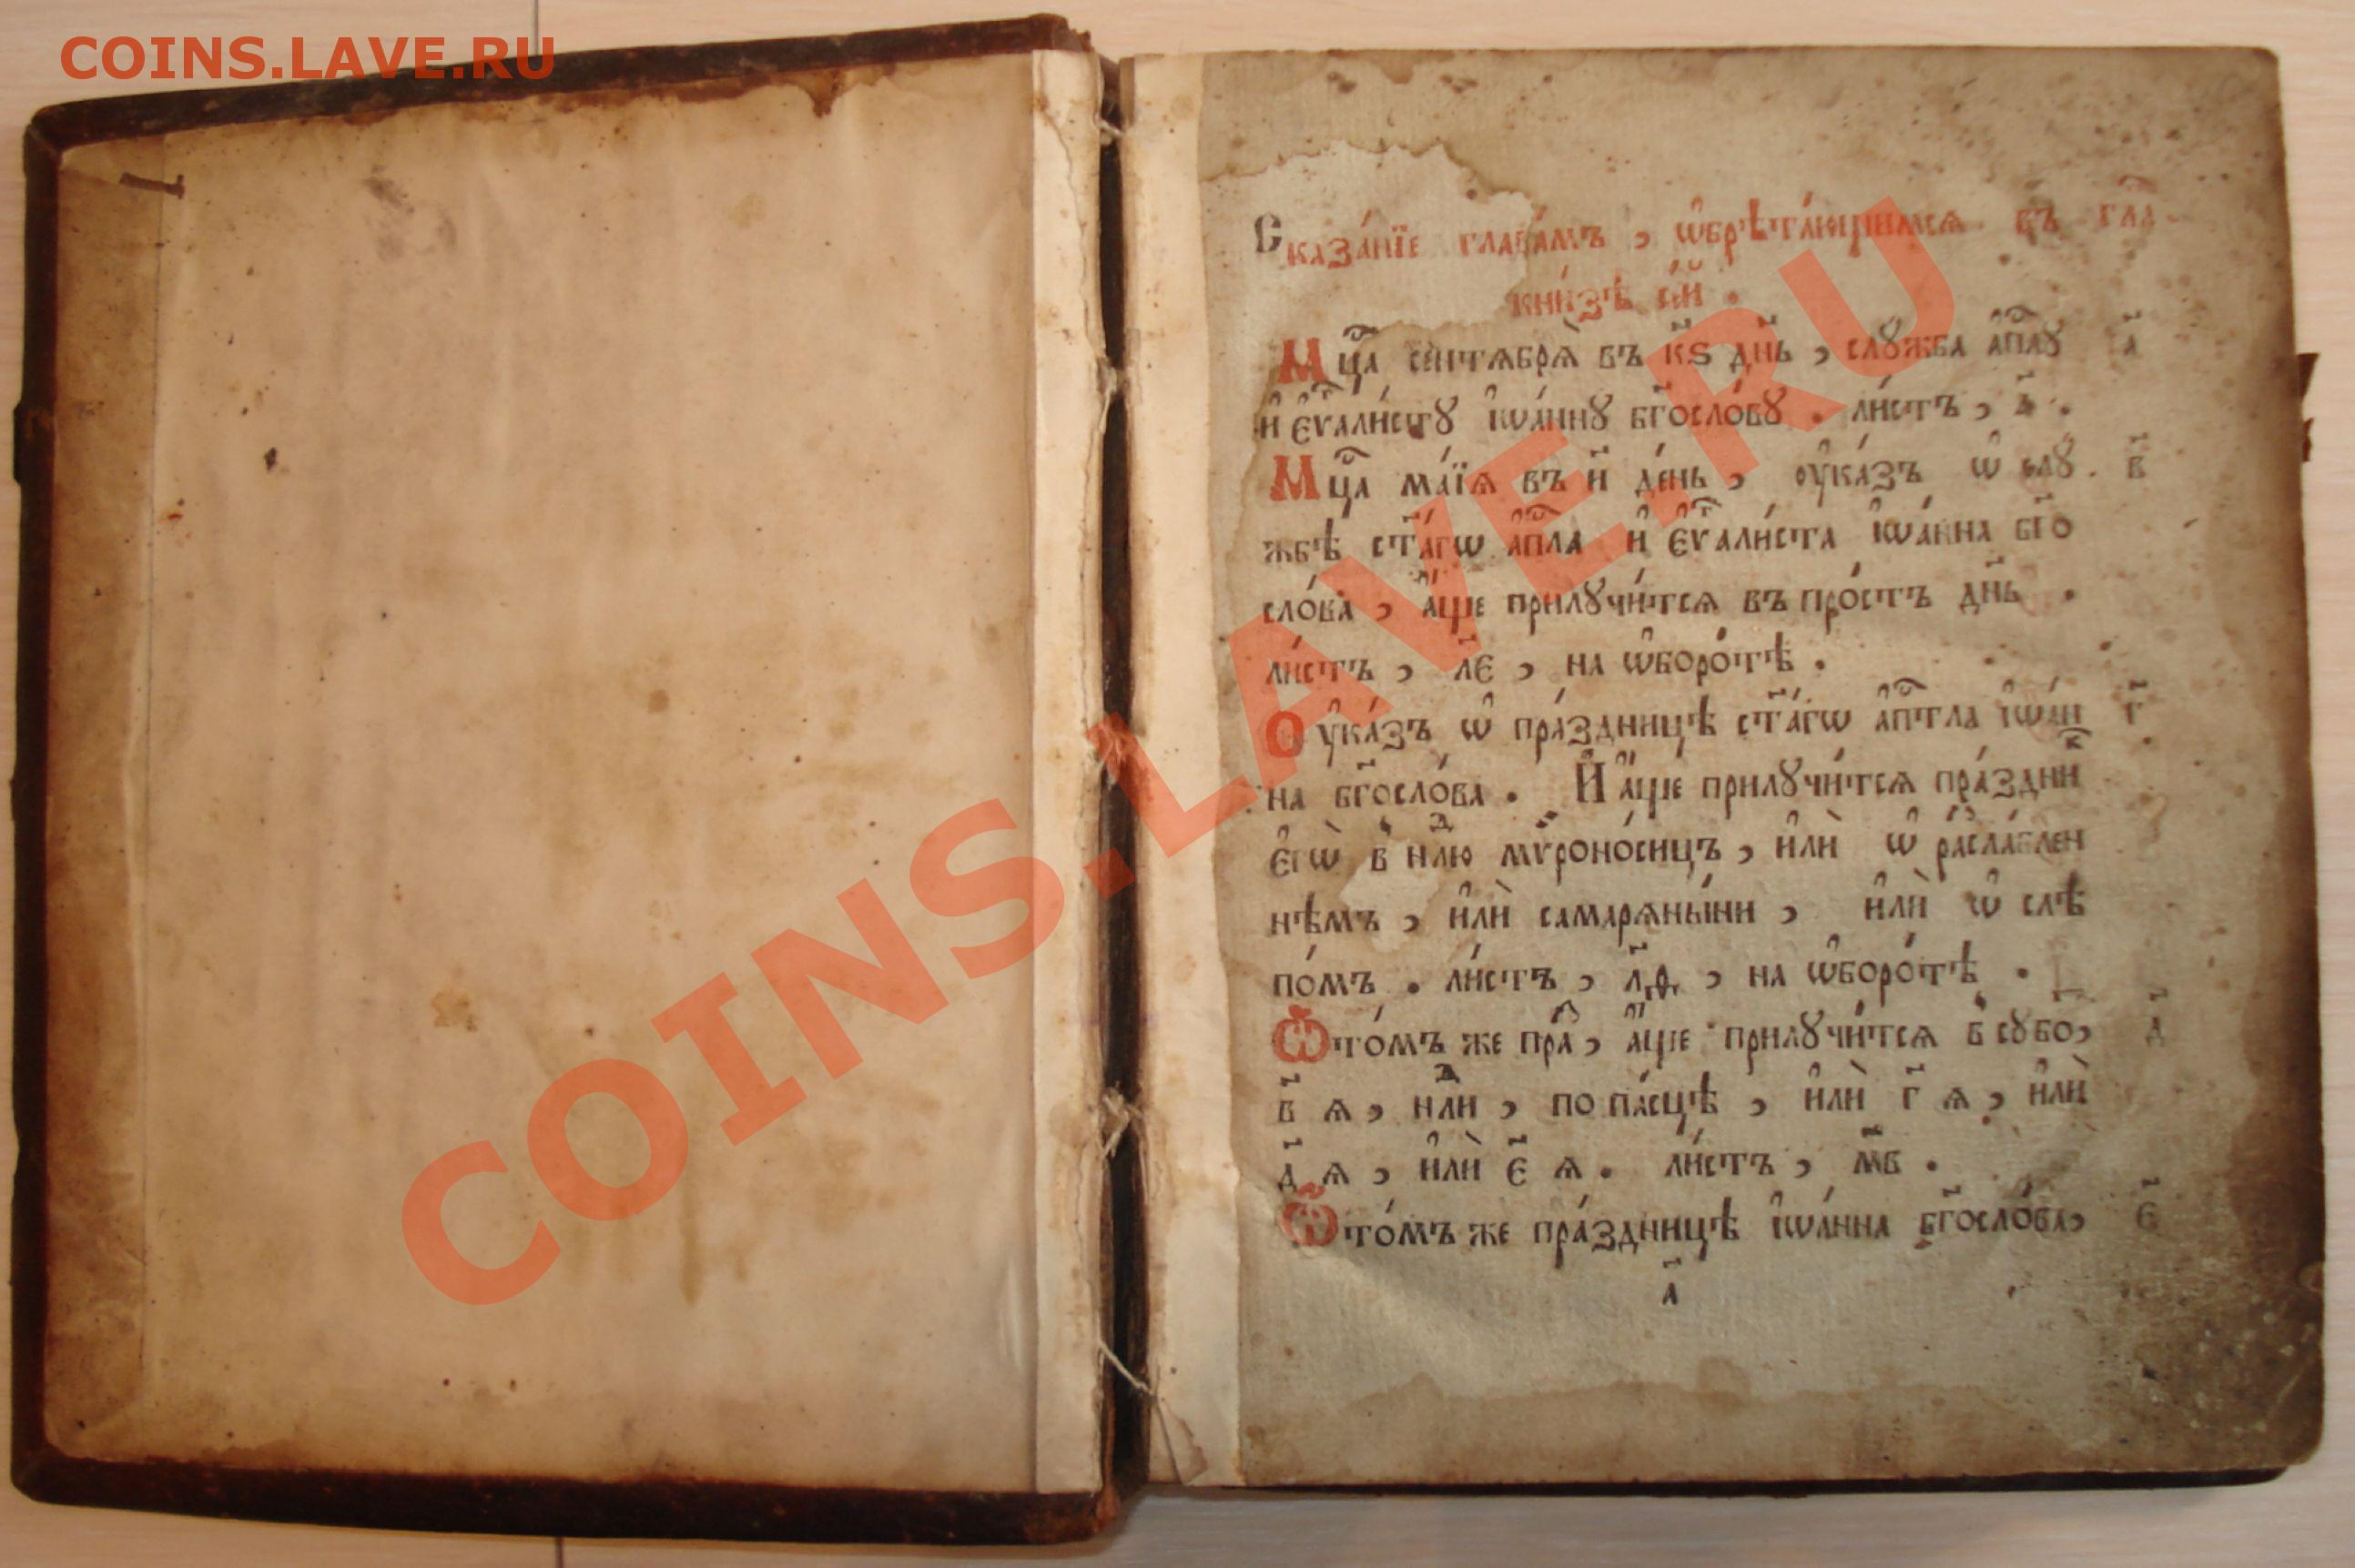 COINS.LAVE.RU
Сказа́нїе глава́мъ, ѡ҆брѣта́ющимсѧ въ гла҃
кни́зѣ се́й.
Мцⷭ҇а сентѧбрѧ̀ въ к҃ѕ дн҃ь, слꙋжба а҆пⷭ҇лꙋ а҃
и҆ є҆ѵⷢ҇али́стꙋ і҆ѡа́ннꙋ бг҃осло́вꙋ. ли́стъ,
Мцⷭ҇а ма́їѧ въ и҃ де́нь, ᲂу҆ка́зъ ѡ҆ слꙋ в҃
жбѣ ст҃а́гѡ а҆пⷭ҇ла и҆ є҆ѵⷢ҇али́ста і҆ѡа́нна бг҃о
сло́ва, а҆́ще прилꙋчи́тсѧ въ про́стъ дн҃ь.
ли́стъ, л҃є, на ѡ҆боро́тѣ.
Оу҆ка́зъ ѡ҆ пра́здницѣ ст҃а́гѡ а҆пⷭ҇тла і҆ѡа́н г҃
на бг҃осло́ва. И҆ а҆́ще прилꙋчи́тсѧ пра́здниⷦ҇
є҆гѡ̀ в̾ нⷣлю мѵроно́сицъ, и҆лѝ ѡ҆ разсла́блен
нѣмъ, и҆лѝ самарѧны́ни, и҆лѝ ѡ҆ слѣ
по́мъ. ли́стъ, л҃ѳ, на ѡ҆боро́тѣ.
Ѡ҆ то́мъ же праⷥ҇, а҆́ще прилꙋчи́тсѧ в̾ сꙋбо, д҃
в҃ ѧ, нⷣли, по па́сцѣ, и҆лѝ г҃ ѧ, и҆лѝ
д҃ ѧ, и҆лѝ є҃ ѧ. ли́стъ, м҃в.
Ѡ҆ то́мъ же пра́здницѣ і҆ѡа́нна бг҃осло́ва, є҃
а҃
COINS.LAVE.RU